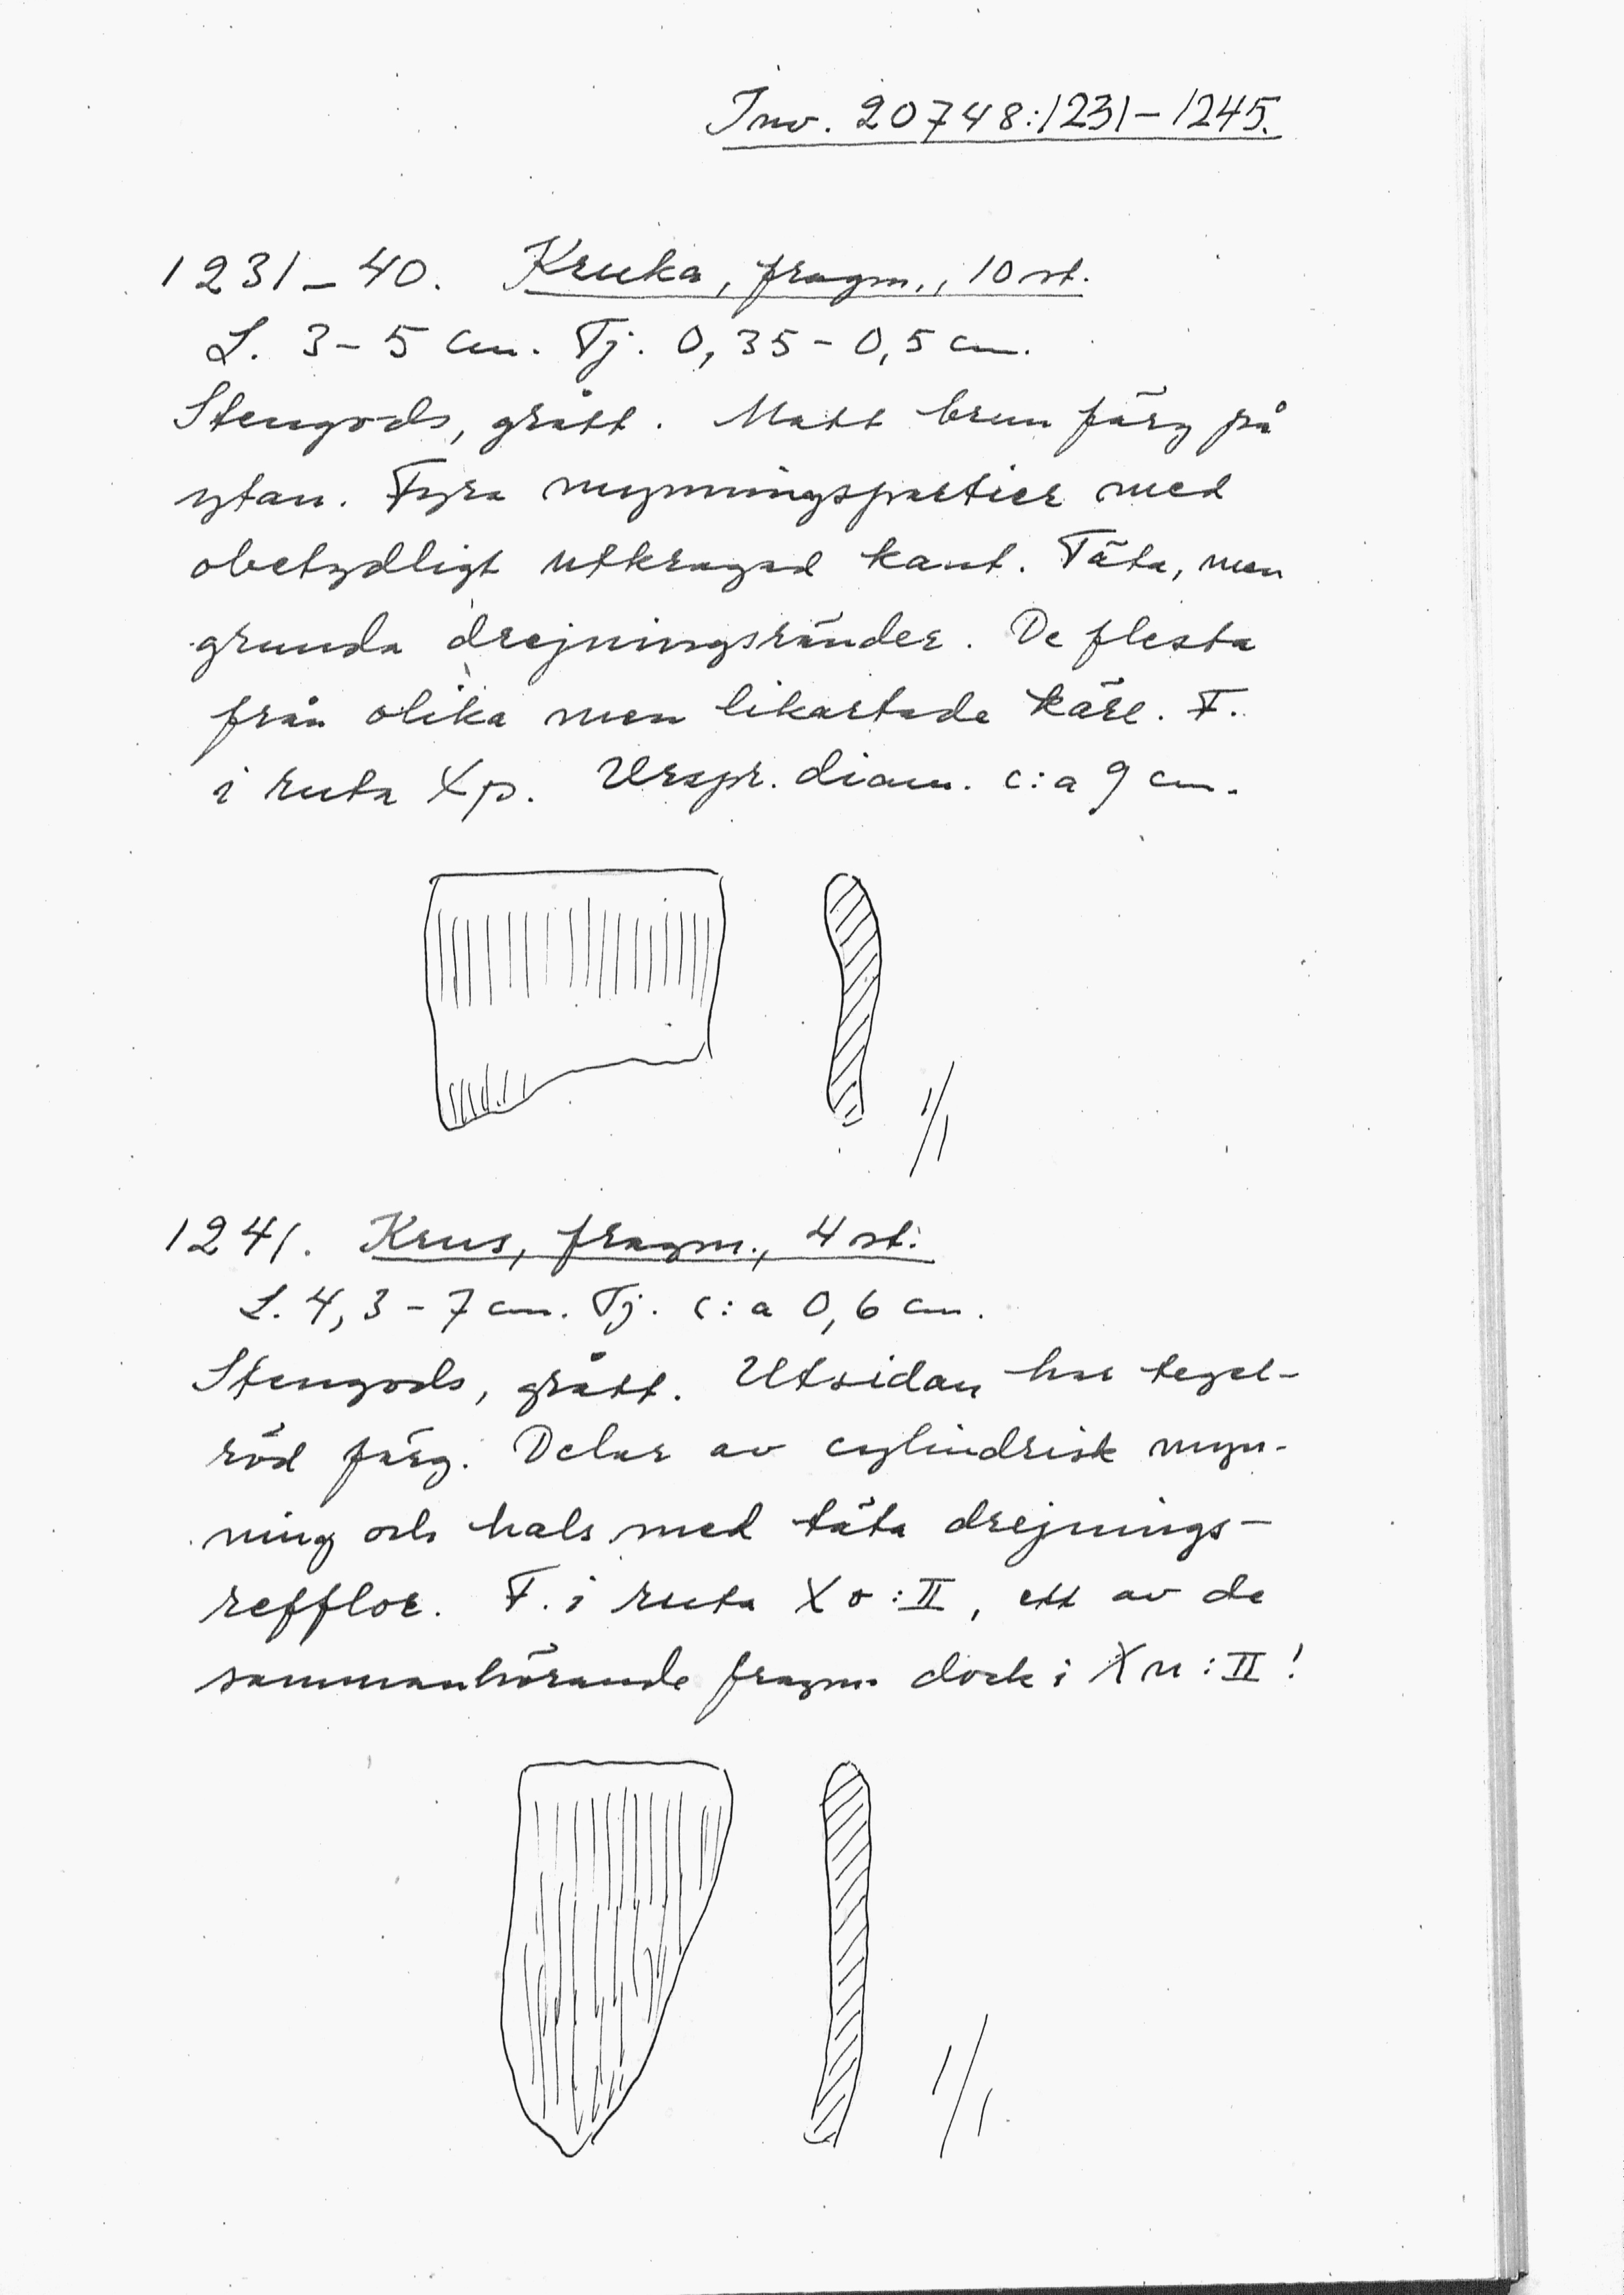 Inv. 20748:1231-1245.
1231-40. Kruka, fragm., 10 st.
L. 3-5 cm. Tj. 0,35-0,5 cm.
Stengods, grått. Matt brun färg på
ytan. Fyra mynningspartier med
obetydligt utkragad kant. Täta, men
grunda drejningsränder. De flesta
från olika men likartade kärl. F.
i ruta Xp. Urspr. diam. c:a 9 cm.
1/1
1241. Krus, fragm., 4 st.
L. 4,3-7 cm. Tj. c:a 0,6 cm.
Stengods, grått. Utsidan har tegel-
röd färg. Delar av cylindrisk myn-
ning och hals med täta drejnings-
refflor. F. i ruta Xo:II, ett av de
sammanhörande fragm. dock i Xn:II!
1/1